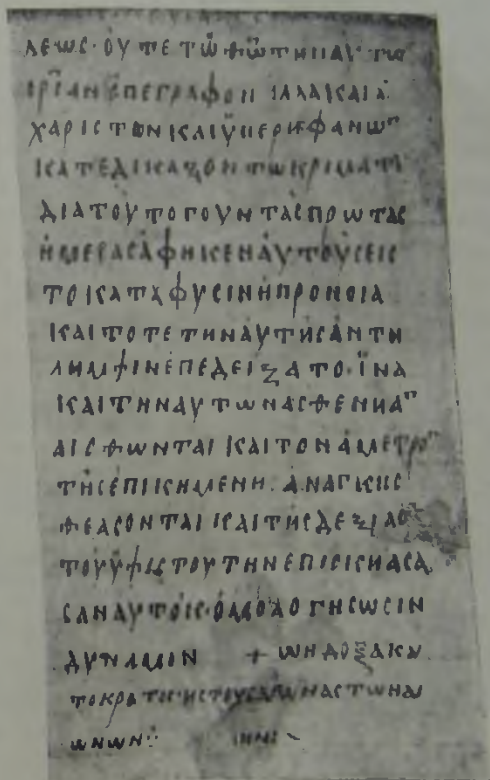 λεωσ· ουτε τω φωτη
ριαν επεγραφον αλλα και α
χαριστων και ϋπερηφανω̅
κατεδικαζοντω κριματι
δια τουτο γουν τας πρωτας
ημερας αφηκεν αυτους εις
το κατα φυσιν η προνοια
και τοτε την αυτης αντη
λημψιν επεδειξατο· ϊνα
και την αυτων ασθενηα̅
αισθωνται και τον αμετρο̅
της επικημενη. αναγκης
θεασονται και της δεξιας
του ϋψιστου την επισκηασα
σαν αυτοις· ομολογησωσιν
δυναμιν + ω η δοξα κ
το κρατος εις τους αιωνας των αι
ωνων: